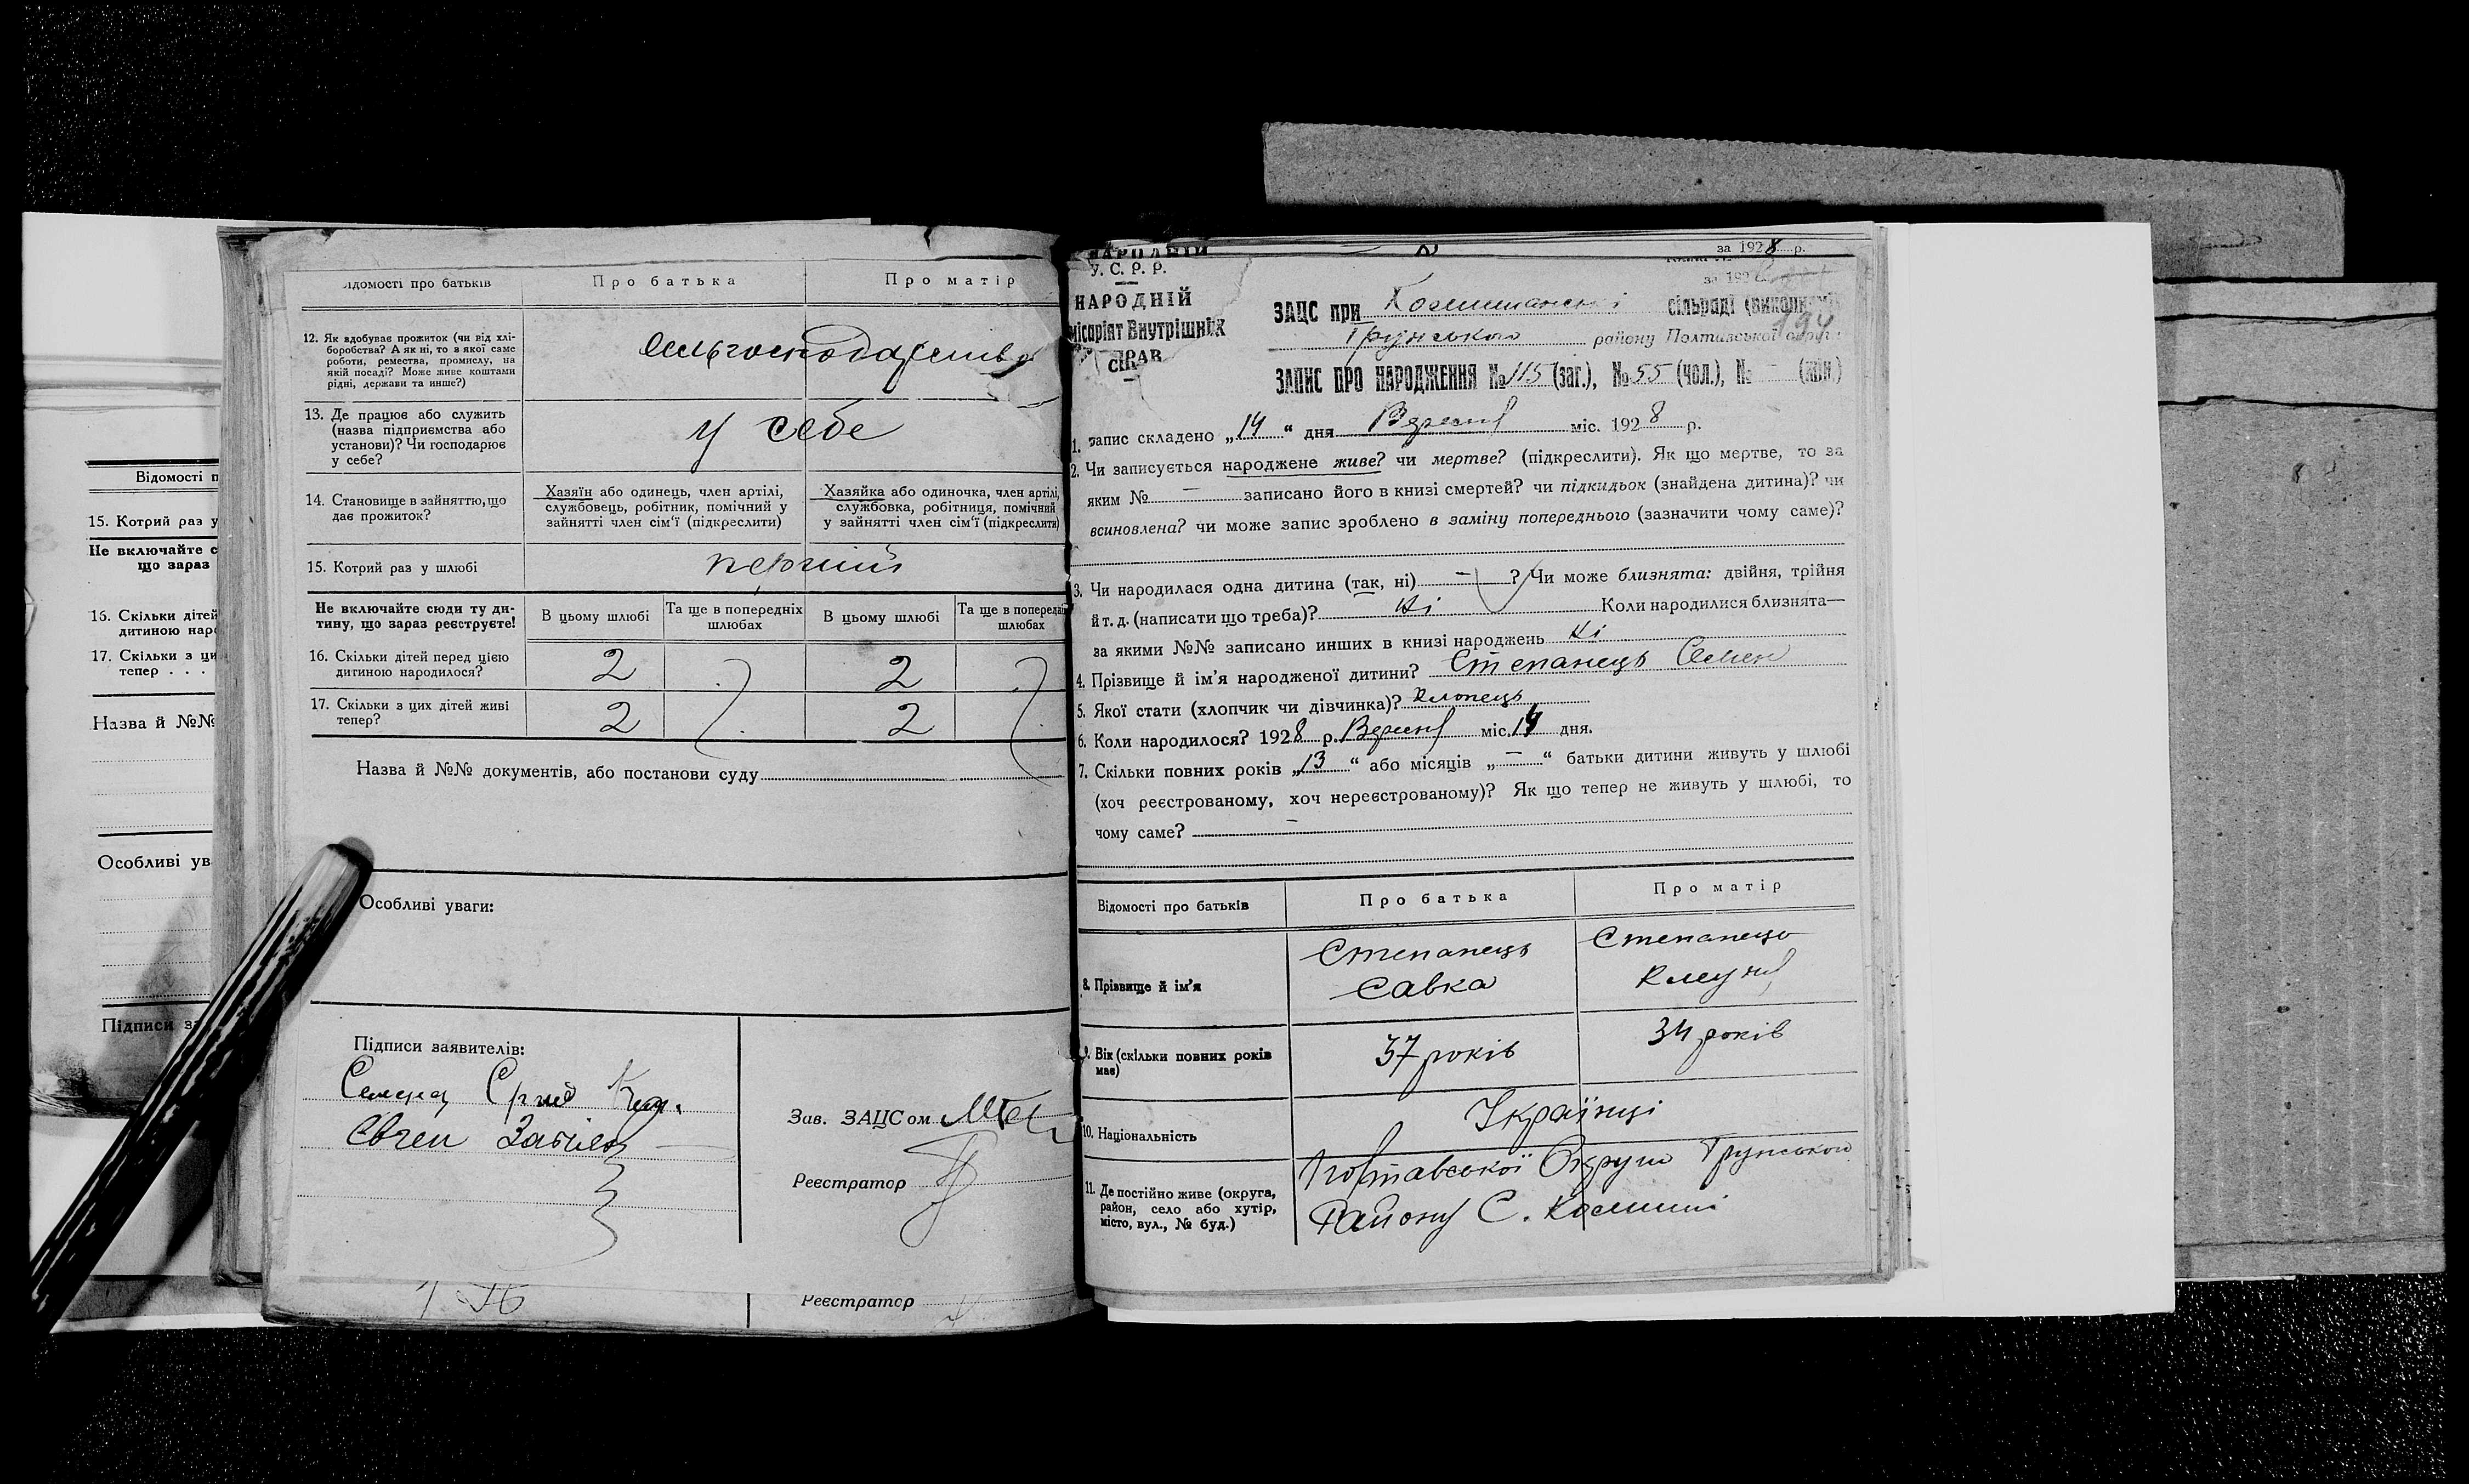 Відомості п
15. Котрий раз у
Не включайте с
що зараз
16. Скільки дітей
дитиною наро
17. Скільки з ци
тепер . . .
Назва й №№
Особливі ув
Підписи за
ідомості про батьків
Про батька
Про матір
12. Як здобуває прожиток (чи від хлі-
боробства? А як ні, то з якої саме
роботи, ремества, промислу, на
якій посаді? Може живе коштами
рідні, держави та инше?)
13. Де працює або служить
(назва підприємства або
установи)? Чи господарює
у себе?
у себе
14. Становище в зайняттю, що
дає прожиток?
Хазяїн або одинець, член артілі,
службовець, робітник, помічний у
зайнятті член сім'ї (підкреслити)
Хазяйка або одиночка, член артілі,
службовка, робітниця, помічний
у зайнятті член сім'ї (підкреслити)
15. Котрий раз у шлюбі
перший
Не включайте сюди ту ди-
тину, що зараз реєструєте!
В цьому шлюбі
Та ще в попередніх
шлюбах
В цьому шлюбі
Та ще в поперед
шлюбах
16. Скільки дітей перед цією
дитиною народилося?
2
2
17. Скільки з цих дітей живі
тепер?
2
2
Назва й №№ документів, або постанови суду
Особливі уваги:
Підписи заявителів:
Зав. ЗАЦСом
Реєстратор
Реєстратор
за 1928 р.
У. С. Р. Р.
НАРОДНІЙ
місаріят Внутрішніх
СПРАВ
ЗАЦС при сільраді
Трунського району Полтавської округи
ЗАПИС ПРО НАРОДЖЕННЯ № 115 (заг.), № 55 (чол.), № – (жін)
1. Запис складено „14“ дня Вересня міс. 1928 р.
2. Чи записується народжене живе? чи мертве? (підкреслити). Як що мертве, то за
яким № – записано його в книзі смертей? чи підкидьок (знайдена дитина)? чи
всиновлена? чи може запис зроблено в заміну попереднього (зазначити чому саме)?
3. Чи народилася одна дитина (так, ні) – ? Чи може близнята: двійня, трійня
й т. д. (написати що треба)? Ні Коли народилися близнята—
за якими №№ записано инших в книзі народжень Ні
4. Прізвище й ім'я народженої дитини? Степанець Семен
5. Якої стати (хлопчик чи дівчинка)? Хлопець
6. Коли народилося? 1928 р. Вересня міс. 14 дня.
7. Скільки повних років „13“ або місяців „–“ батьки дитини живуть у шлюбі
(хоч реєстрованому, хоч нереєстрованому)? Як що тепер не живуть у шлюбі, то
чому саме? –
Відомості про батьків
Про батька
Про матір
8. Прізвище й ім'я
Степанець
Савка
Степанець
9. Вік (скільки повних років
має)
37 років
34 років
10. Національність
Українці
11. Де постійно живе (округа,
район, село або хутір,
місто, вул., № буд.)
Полтавської Округи Трунського
Району С.